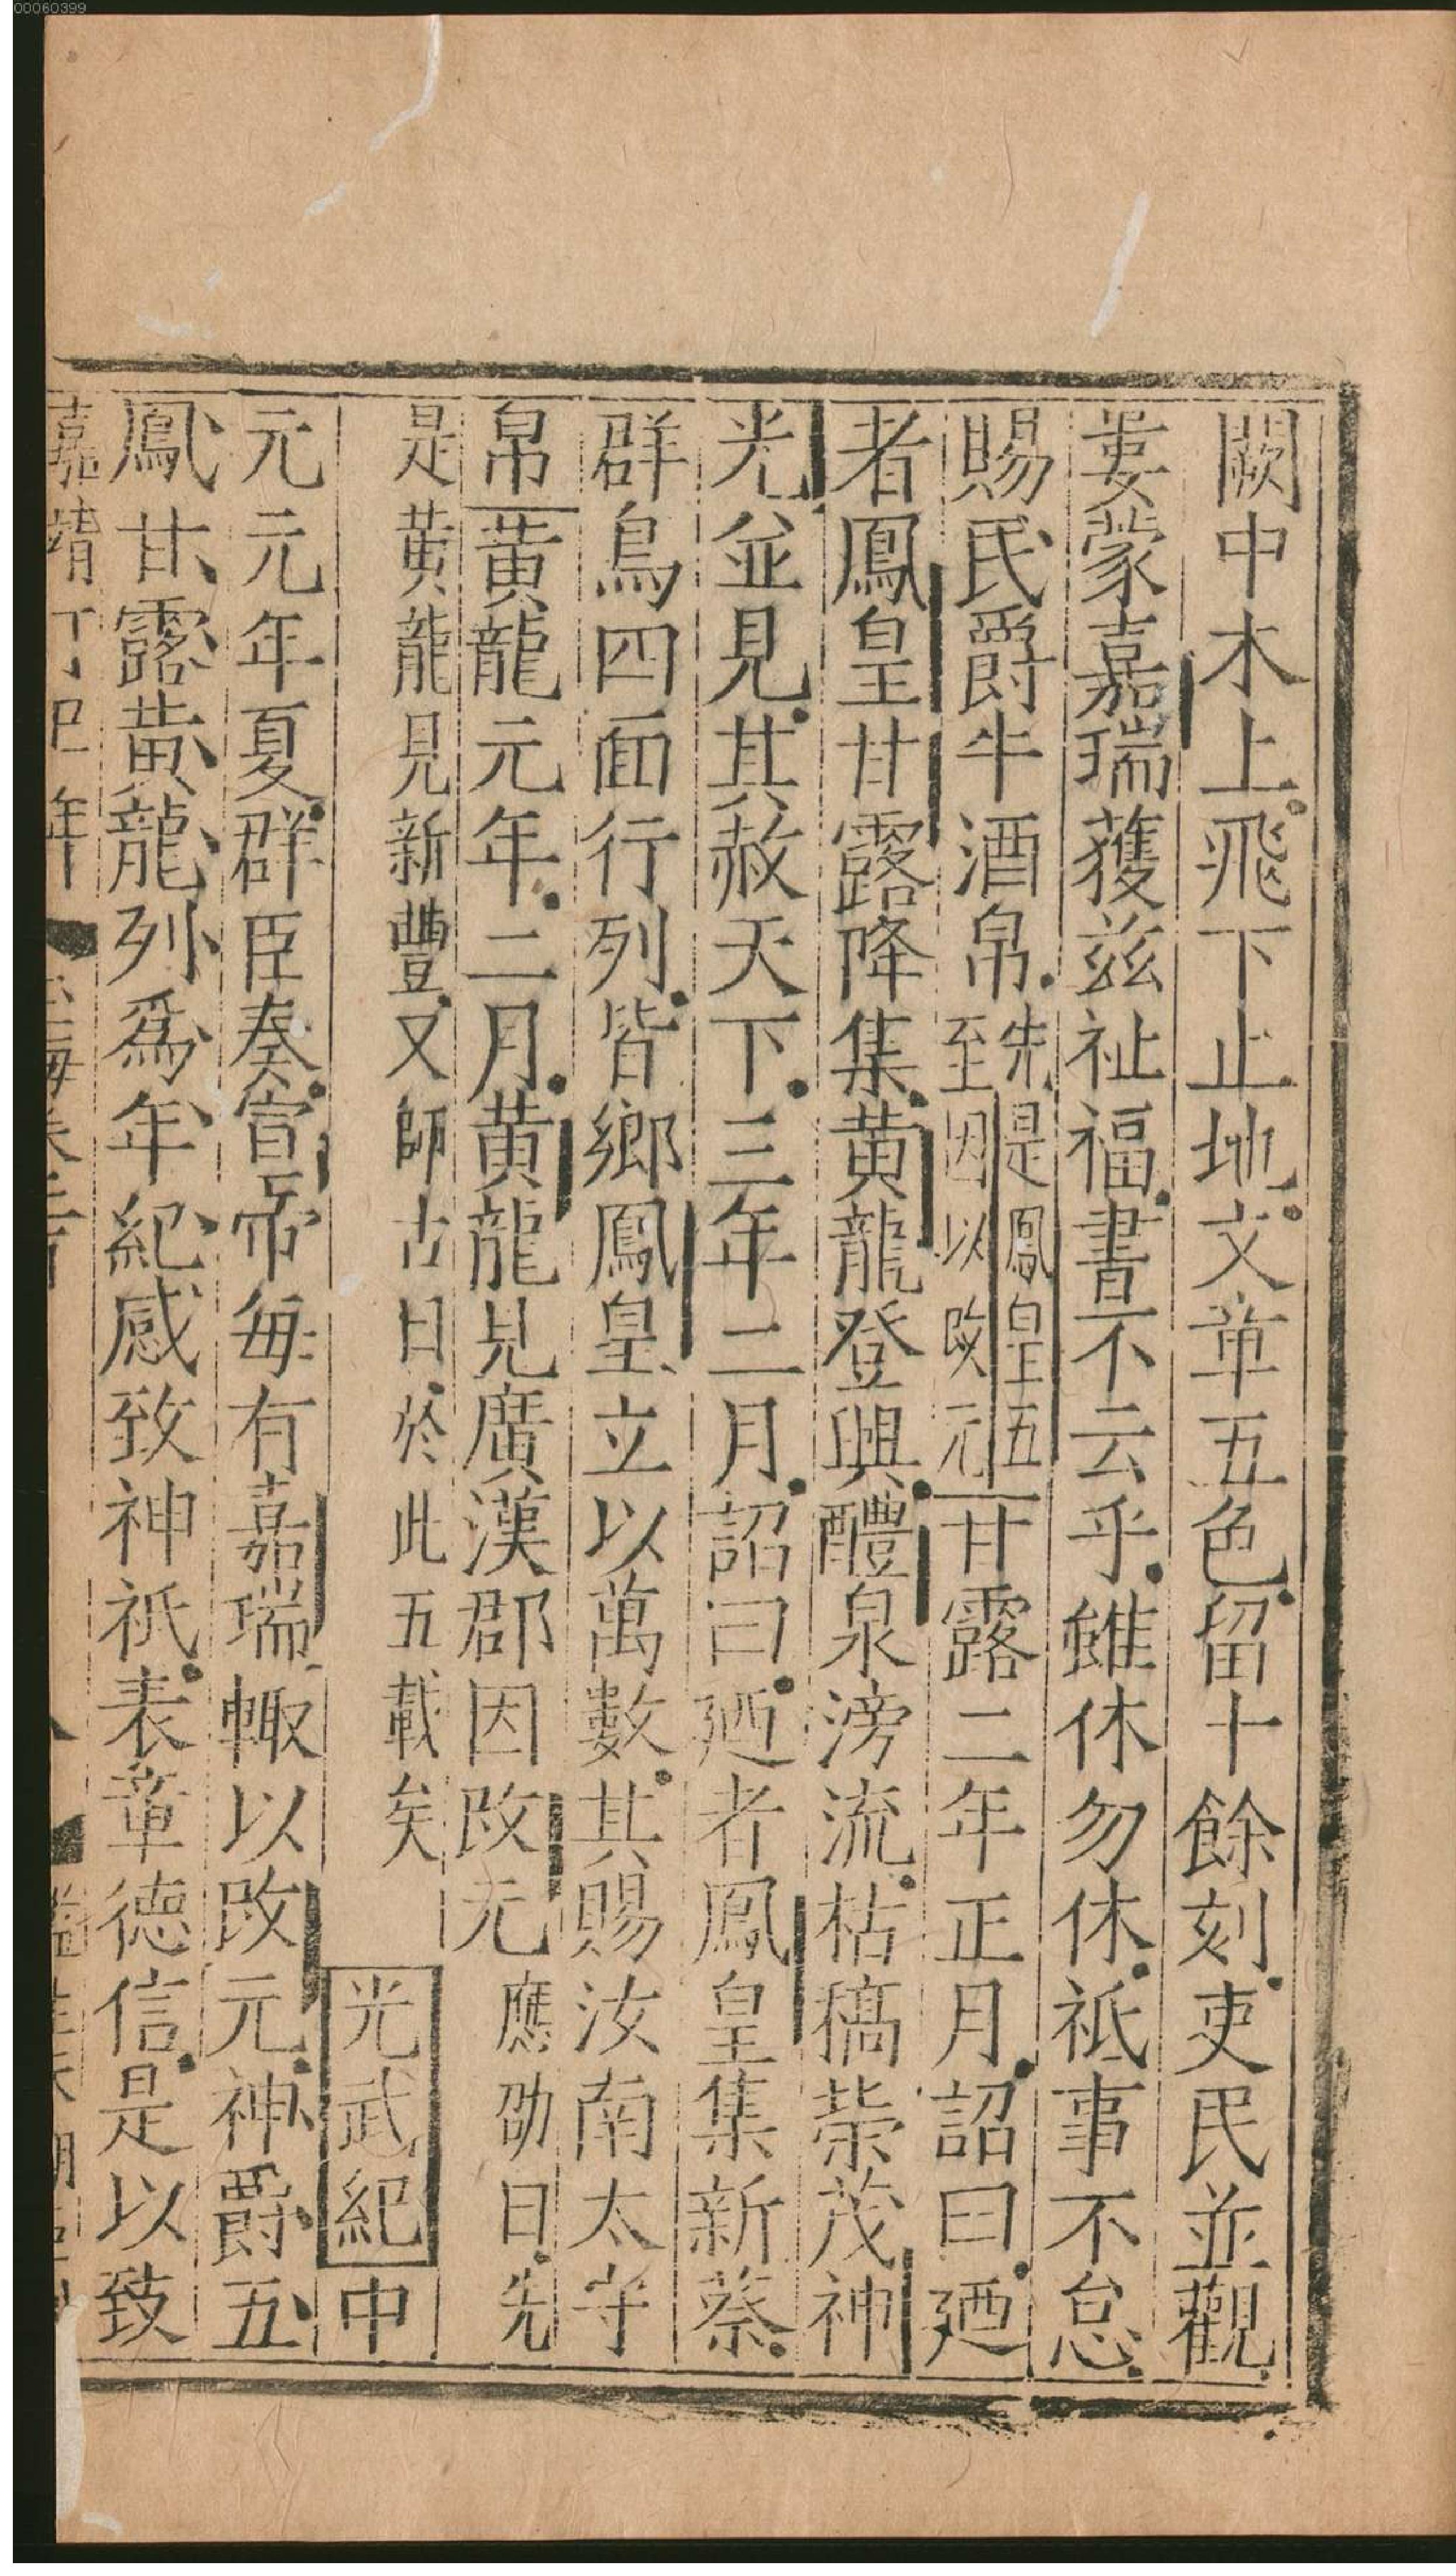 00060399
闕中木上飛下止地文章五色留十餘刻吏民並觀
婁蒙嘉瑞獲兹祉福書不云乎雖休勿休祗事不怠
賜民爵牛酒帛先是鳳皇五至因以改元甘露二年正月詔曰廼
者鳳皇甘露降集黄龍登興醴泉滂流枯槁榮茂神
光並見其赦天下三年二月詔曰廼者鳳皇集新蔡
群鳥四面行列皆鄉鳳皇立以萬數其賜汝南太守
帛黄龍元年二月黄龍見廣漢郡因改元應劭曰先
是黄龍見新豐又師古曰於此五載矣光武紀中
元元年夏群臣奏宣帝每有嘉瑞輙以改元神爵五
鳳甘露黄龍列爲年紀感致神祇表章德信是以致
嘉靖丁巳年